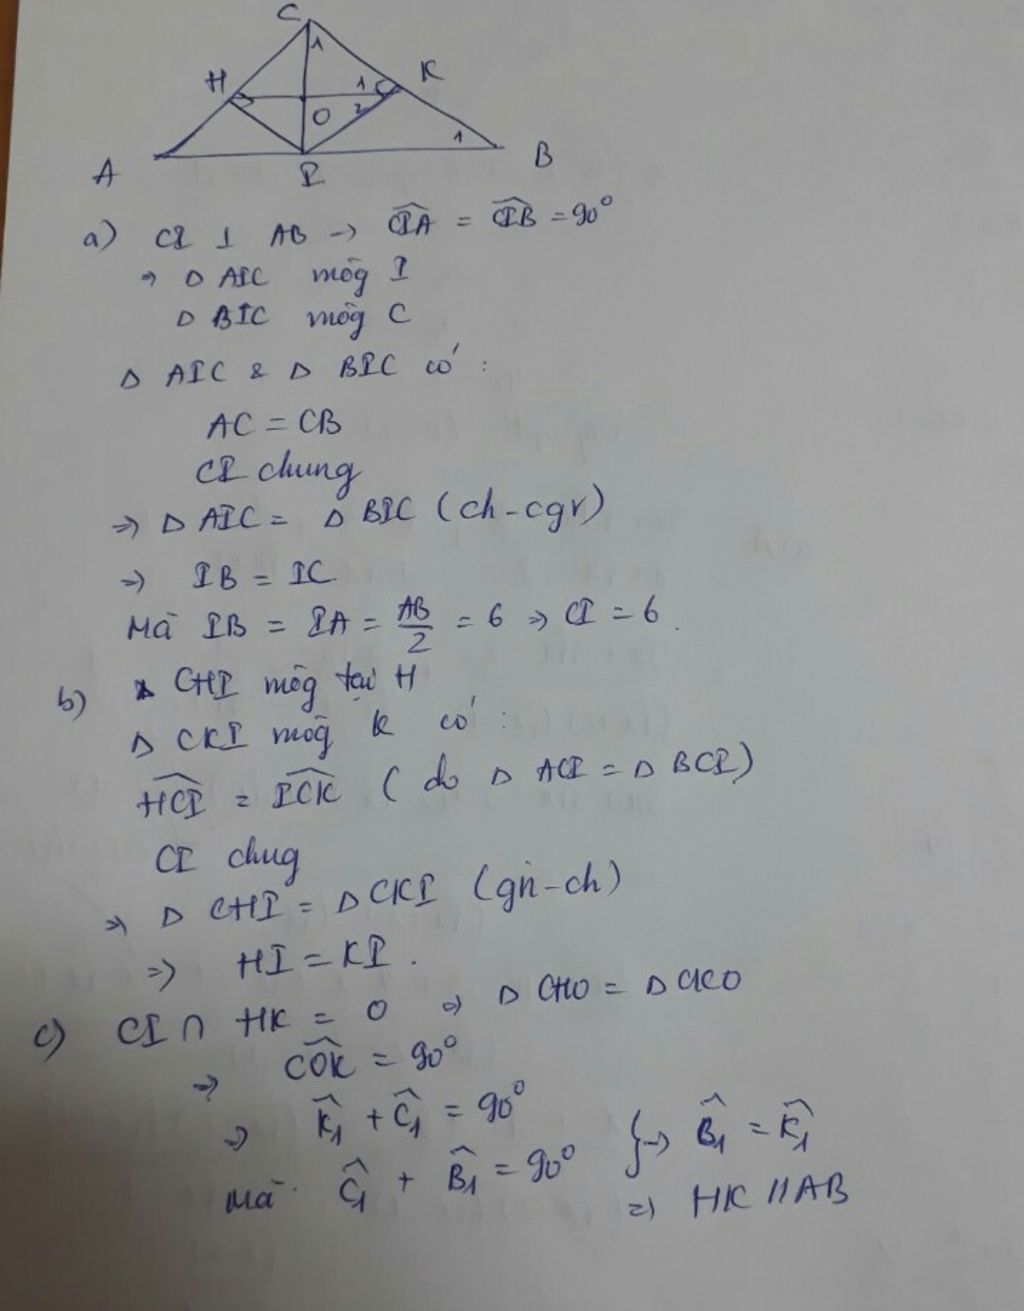 C
1
H
1
K
O
2
1
A
I
B
a) CI ⊥ AB → CIA = CIB = 90°
⇒ Δ AIC vuông I
Δ BIC vuông C
Δ AIC & Δ BIC có :
AC = CB
CI chung
⇒ Δ AIC = Δ BIC (ch - cgv)
⇒ IB = IC
Mà IB = IA = AB/2 = 6 ⇒ CI = 6.
b) Δ CHI vuông tại H
Δ CKI vuông K có :
HCI = ICK ( do Δ ACI = Δ BCI)
CI chug
⇒ Δ CHI = Δ CKI (gn - ch)
⇒ HI = KI .
c) CI ∩ HK = O ⇒ Δ CHO = Δ CKO
⇒ COK = 90°
⇒ K1 + C1 = 90°
Mà C1 + B1 = 90° } → B1 = K1
⇒ HK // AB